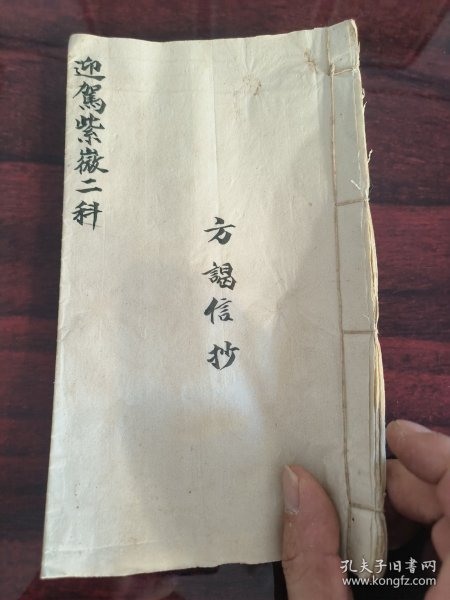 迎駕紫微二科
方謁信抄
孔夫子旧书网
www.kongfz.com